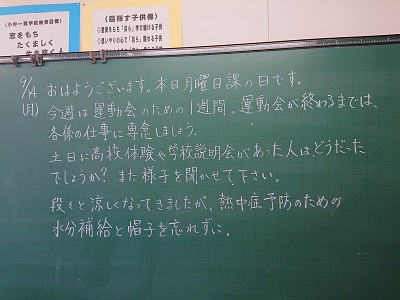 〈小中一貫学校教育目標〉
志をもち
たくましく
生き抜く人
《目指す子供像》
9/14 おはようございます。本日月曜日課の日です。
(月) 今週は運動会のための1週間。運動会が終わるまでは、
各係の仕事に専念しましょう。
土日に高校体験や学校説明会があった人は、どうだった
でしょうか？また様子を聞かせて下さい。
段々と涼しくなってきましたが、熱中症予防のための
水分補給と帽子を忘れずに。